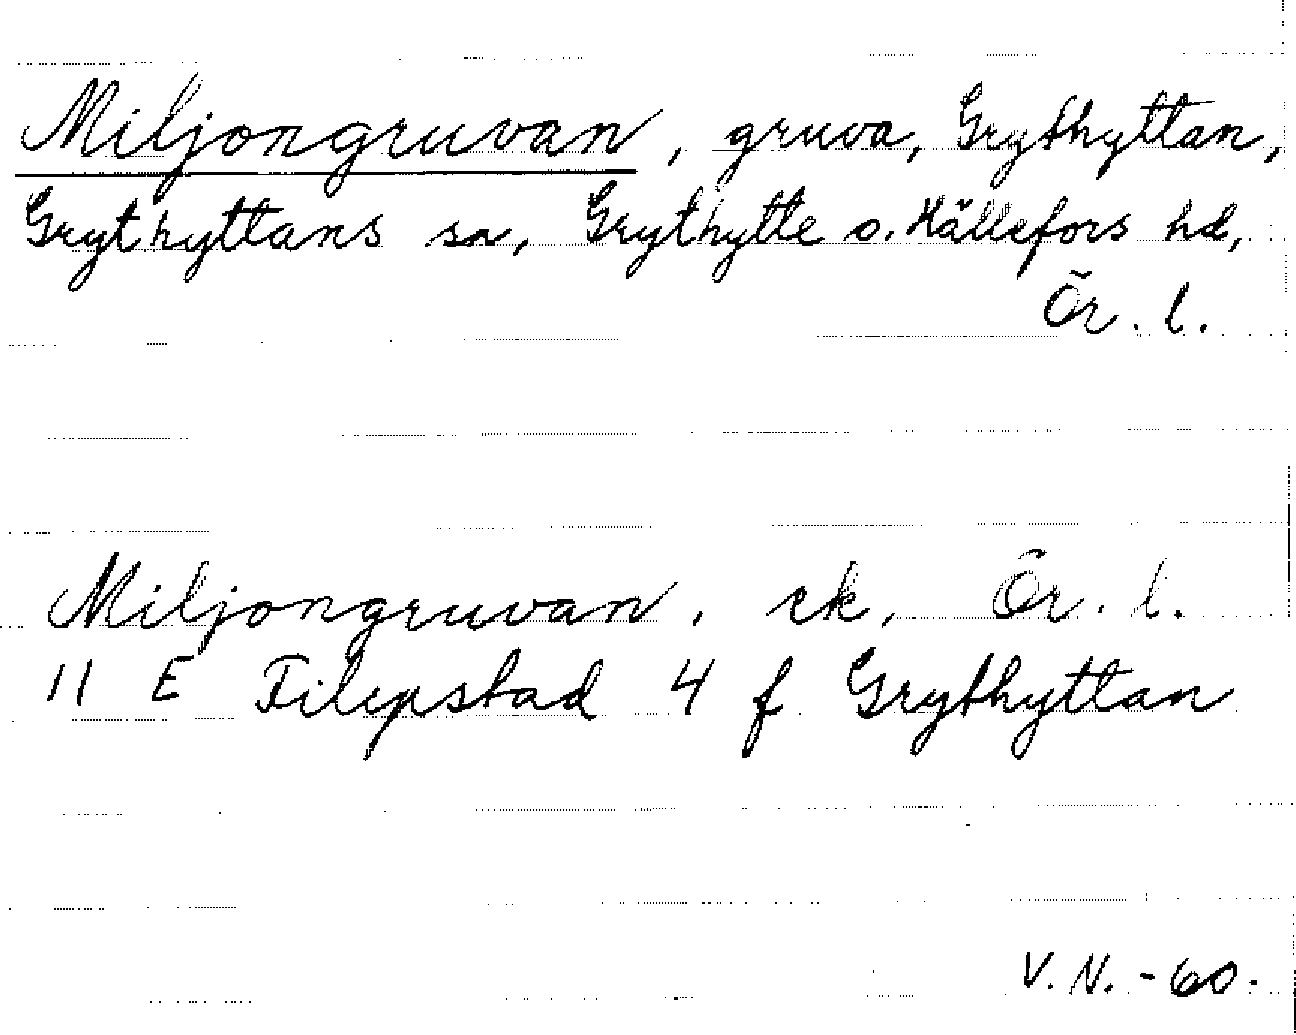 Miljongruvan, gruva, Grythyttan,
Grythyttans sn, Grythytte o. Hällefors hd,
Ör. l.
Miljongruvan, ek, Ör. l.
11 E Filipstad 4 f Grythyttan
V. N. - 60.